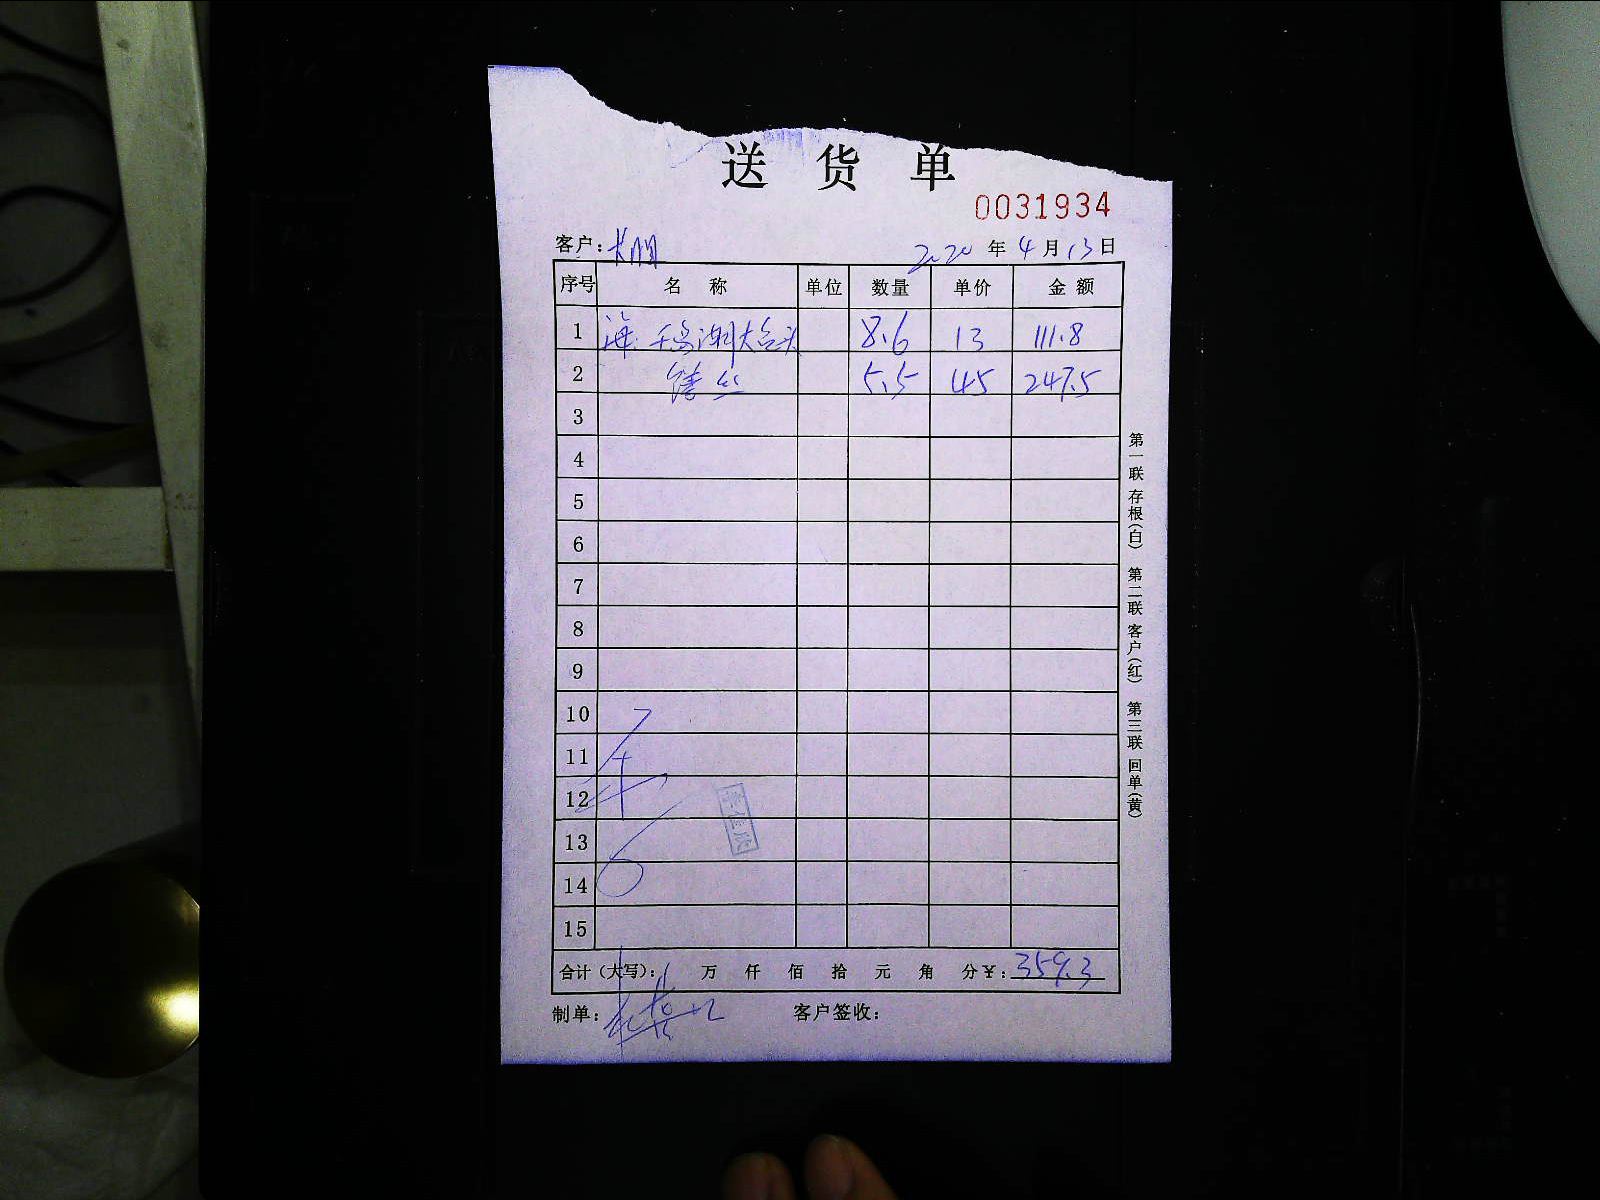 送货单
0031934
客户: 2020年4月13日
序号 名称 单位 数量 单价 金额
1 海 千岛湖大鱼头 8.6 13 111.8
2 丝 5.5 45 247.5
3
4
5
6
7
8
9
10
11
12
13
14
15
合计(大写): 万 仟 佰 拾 元 角 分¥: 359.3
制单: 客户签收:
第一联 存根(白) 第二联 客户(红) 第三联 回单(黄)